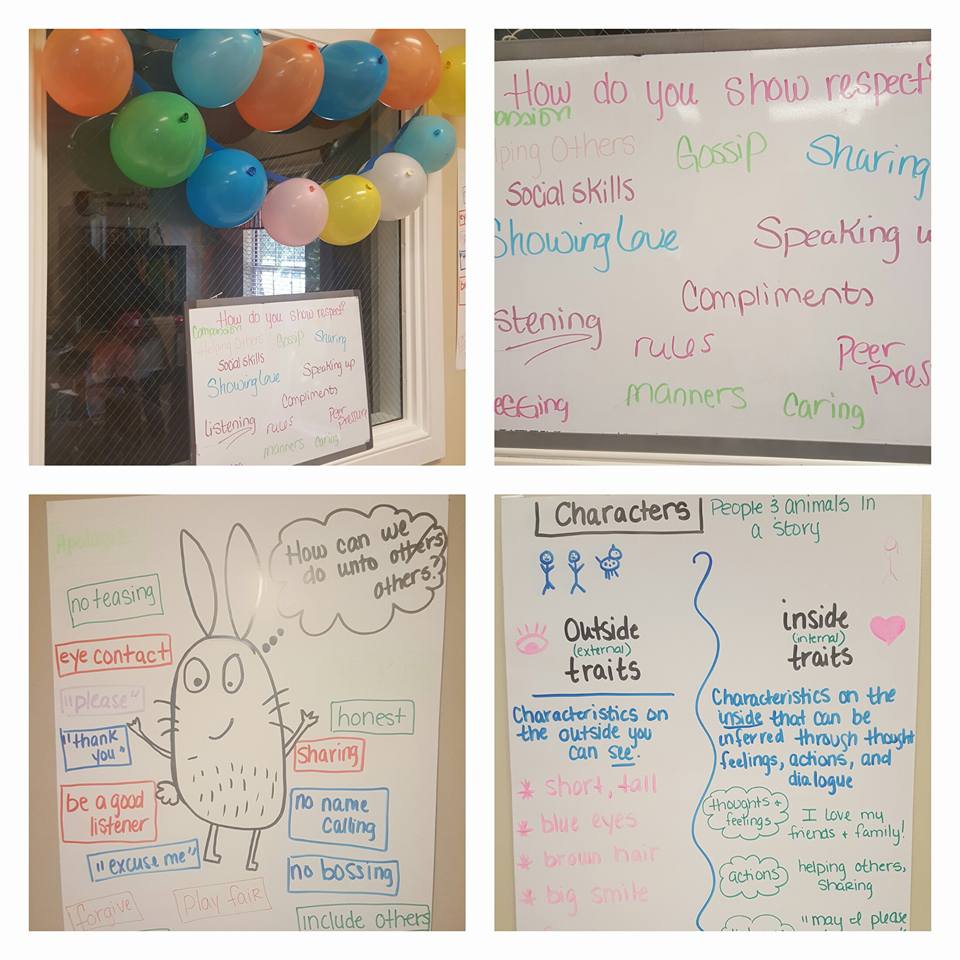 How do you show respect?
Compassion
Helping Others
Gossip
Sharing
Social skills
Showing Love
Speaking up
Compliments
Listening
rules
Peer
Pressure
manners
caring
How do you show respect?
ping Others
Gossip
Sharing
Social skills
Showing Love
Speaking u
Compliments
stening
rules
Peer
pres
manners
Caring
How can we
do unto otters
others?
no teasing
eye contact
"please"
"thank
you"
be a good
listener
"excuse me"
forgive
play fair
honest
sharing
no name
calling
no bossing
include others
Characters
People & animals in
a story
Outside
(external)
traits
Characteristics on
the outside you
can see.
* short, tall
* blue eyes
* brown hair
* big smile
inside
(internal)
traits
Characteristics on the
inside that can be
inferred through thought
feelings, actions, and
dialogue
thoughts +
feelings
I love my
friends + family!
actions
helping others,
sharing
"may I please